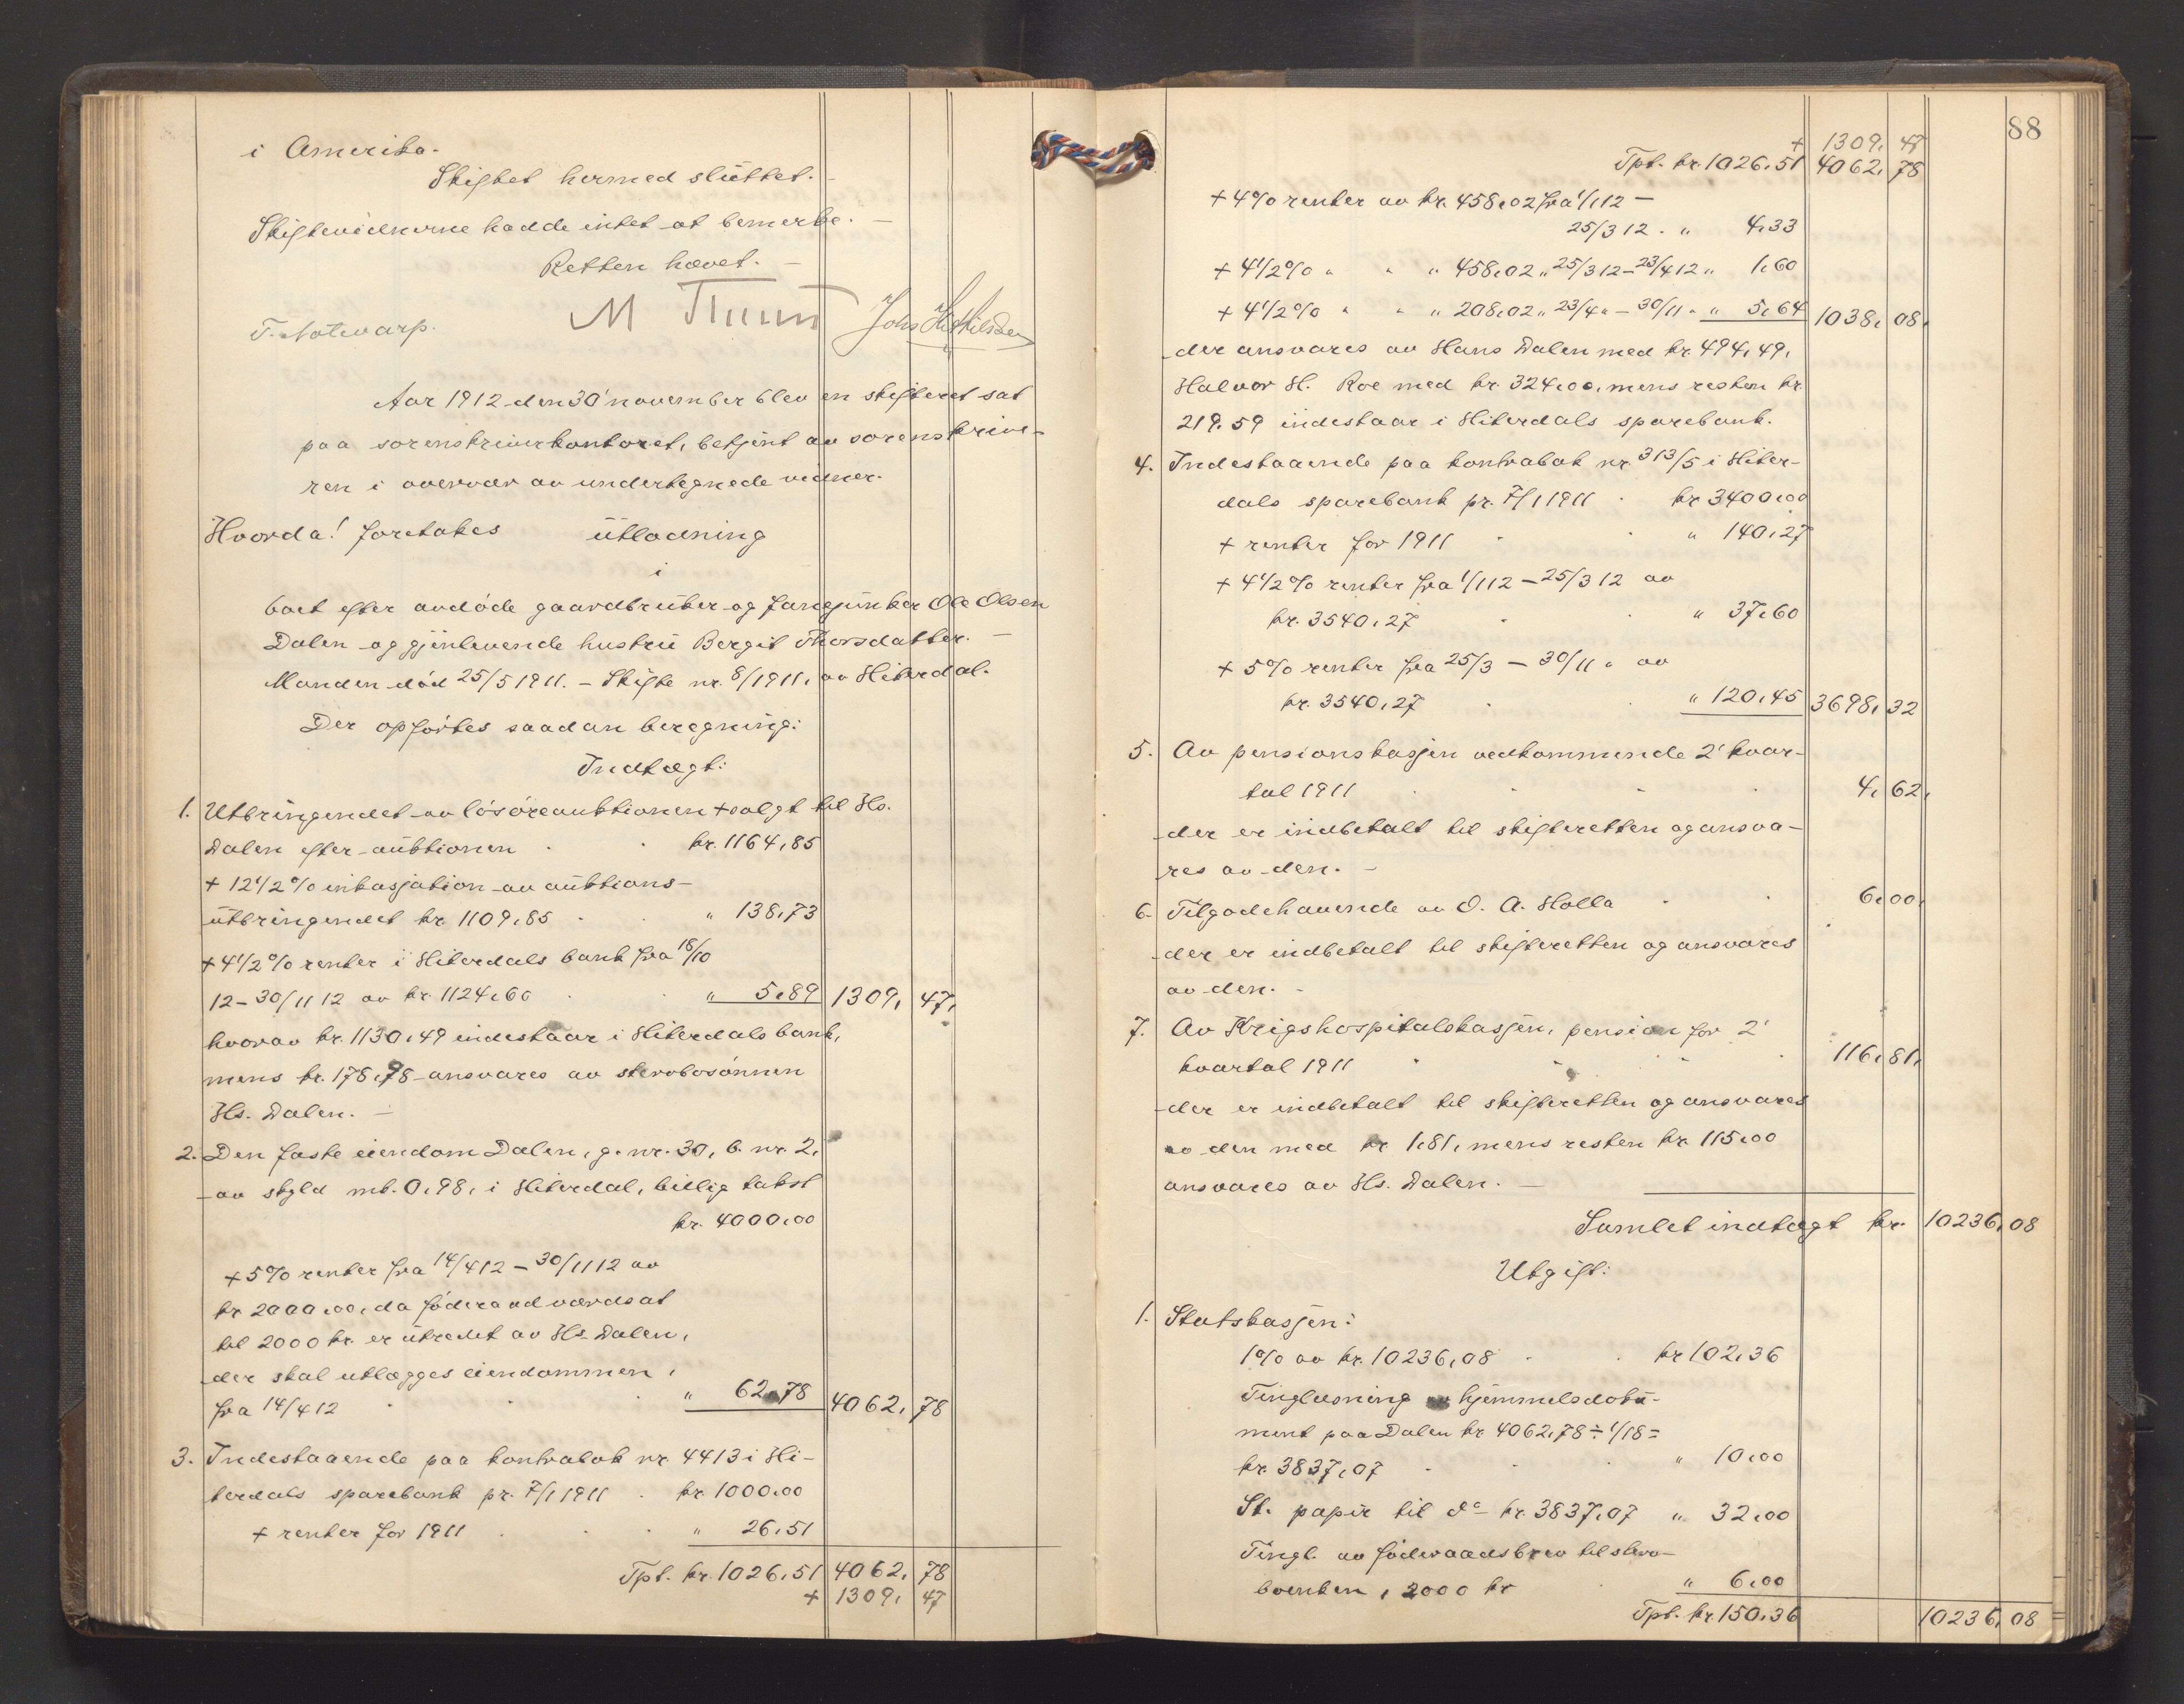 i Amerika.
Skiftet hermed sluttet. —
Skiftevidnerne hadde intet at bemerke. —
Retten hævet. —
T. Notevarp.
Aar 1912 den 30' november blev en skifteret sat
paa sorenskriverkontoret, betjent av sorenskrive-
ren i overvær av undertegnede vidner.
Hvorda! foretokes utlodning
i
boet efter avdøde gaardbruker og fanejunker Ole Olsen
Dalen og gjenlevende hustru Bergit Thorsdatter. —
Manden død 25/5 1911. – Skifte nr. 8/1911, av Hiterdal.
Der opførtes saadan beregning:
Indtægt:
1. Utbringendet av løsøreauktionen + solgt til Hs.
Dalen efter auktionen . . kr. 1164,85
+ 12 1/2 % inkasjation av auktions-
utbringendet kr. 1109,85 . . " 138,73
+ 4 1/2 % renter i Hiterdals bank fra 18/10
12 – 30/11 12 av kr. 1124,60 . . " 5,89 1309, 47,
hvorav kr. 1130,49 indestaar i Hiterdals bank,
mens kr. 178,98 ansvares av stervbosønnen
Hs. Dalen. —
2. Den faste eiendom Dalen, g. nr. 30, b. nr. 2,
av skyld mk. 0,98, i Hiterdal, billig takst
kr. 4000,00
+ 5 % renter fra 14/4 12 – 30/11 12 av
kr 2000,00, da føderaad værdsat
til 2000 kr. er utredet av Hs. Dalen,
der skal utlægges eiendommen,
fra 14/4 12 . . . " 62,78 4062, 78
3. Indestaaende paa kontrabok nr. 4413 i Hi-
terdals sparebank pr. 7/1 1911 . kr. 1000,00
+ renter for 1911 . . . " 26,51
Tpt. kr. 1026,51 4062, 78
+ 1309, 47
88
+ 1309, 47
Tpt. kr. 1026,51 4062, 78
+ 4 % renter av kr. 458,02 fra 1/1 12 –
25/3 12 . " 4,33
+ 4 1/2 % " " " 458,02 " 25/3 12 – 23/4 12 " 1,60
+ 4 1/2 % " " " 208,02 " 23/4 " – 30/11 " " 5,64 1038, 08,
der ansvares av Hans Dalen med kr. 494,49,
Halvor H. Roe med kr. 324,00, mens resten kr.
219,59 indestaar i Hiterdals sparebank.
4. Indestaaende paa kontrabok nr 313/5 i Hiter-
dals sparebank pr. 7/1 1911 . kr 3400,00
+ renter for 1911 . . " 140,27
+ 4 1/2 % renter fra 1/1 12 – 25/3 12 av
kr. 3540,27 . . " 37,60
+ 5 % renter fra 25/3 – 30/11 " av
kr. 3540,27 . . " 120,45 3698, 32
5. Av pensionskassen vedkommende 2' kvar-
tal 1911 . . . . 4, 62,
der er indbetalt til skifteretten og ansva-
res av den. —
6. Tilgodehavende av O. A. Holla . . 6,00,
der er indbetalt til skifteretten og ansvares
av den. —
7. Av Krigshospitalskassen, pension for 2'
kvartal 1911 . . . . 116, 81,
der er indbetalt til skifteretten og ansvares
av den med kr 1,81, mens resten kr. 115,00
ansvares av Hs. Dalen. —
Samlet indtægt kr. 10236, 08
Utgift:
1. Statskassen:
1 % av kr. 10236,08 . . kr 102,36
Tinglæsning av hjemmelsdoku-
ment paa Dalen kr 4062,78 ÷ 1/18 =
kr. 3837,07 . . . " 10,00
St. papir til do kr. 3837,07 " 32,00
Tingl. av føderaadsbrev til sterv-
boenken, 2000 kr . " 6,00
Tpt. kr. 150,36 10236, 08